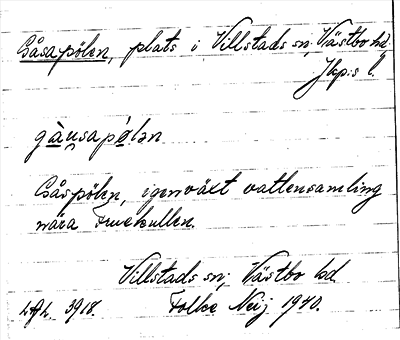 Gåsapölen, plats i Villstads sn, Västbo hd.
Jkp:s l.
gàu̯sapọ́lən
Gåspölen, igenväxt vattensamling
nära Furekullen.
Villstads sn, Västbo hd.
L.A.L. 3918. Folke Neij 1940.